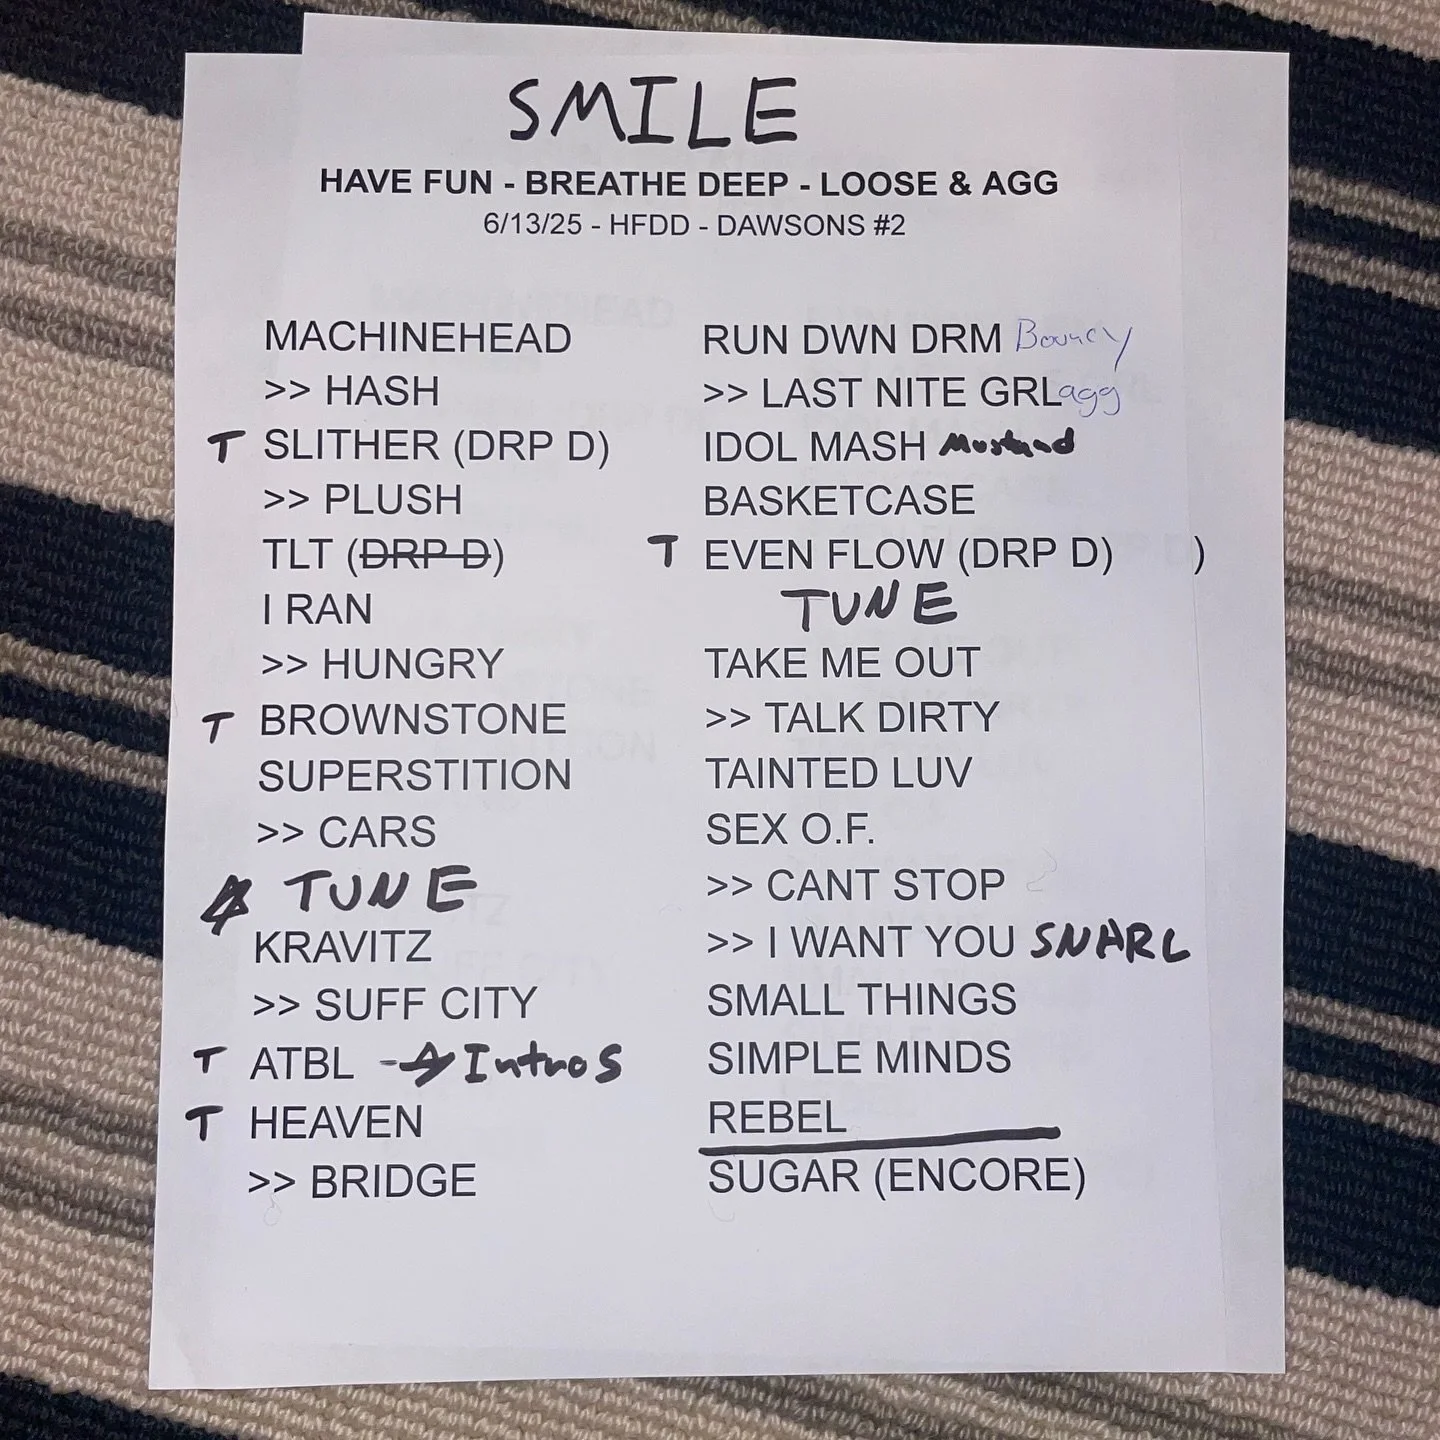 SMILE
HAVE FUN - BREATHE DEEP - LOOSE & AGG
6/13/25 - HFDD - DAWSONS #2
MACHINEHEAD
>> HASH
T SLITHER (DRP D)
>> PLUSH
TLT (DRP D)
I RAN
>> HUNGRY
T BROWNSTONE
SUPERSTITION
>> CARS
TUNE
KRAVITZ
>> SUFF CITY
T ATBL -> Intros
T HEAVEN
>> BRIDGE
RUN DWN DRM Bouncy
>> LAST NITE GRL agg
IDOL MASH Mustand
BASKETCASE
T EVEN FLOW (DRP D) )
TUNE
TAKE ME OUT
>> TALK DIRTY
TAINTED LUV
SEX O.F.
>> CANT STOP
>> I WANT YOU SNARL
SMALL THINGS
SIMPLE MINDS
REBEL
SUGAR (ENCORE)